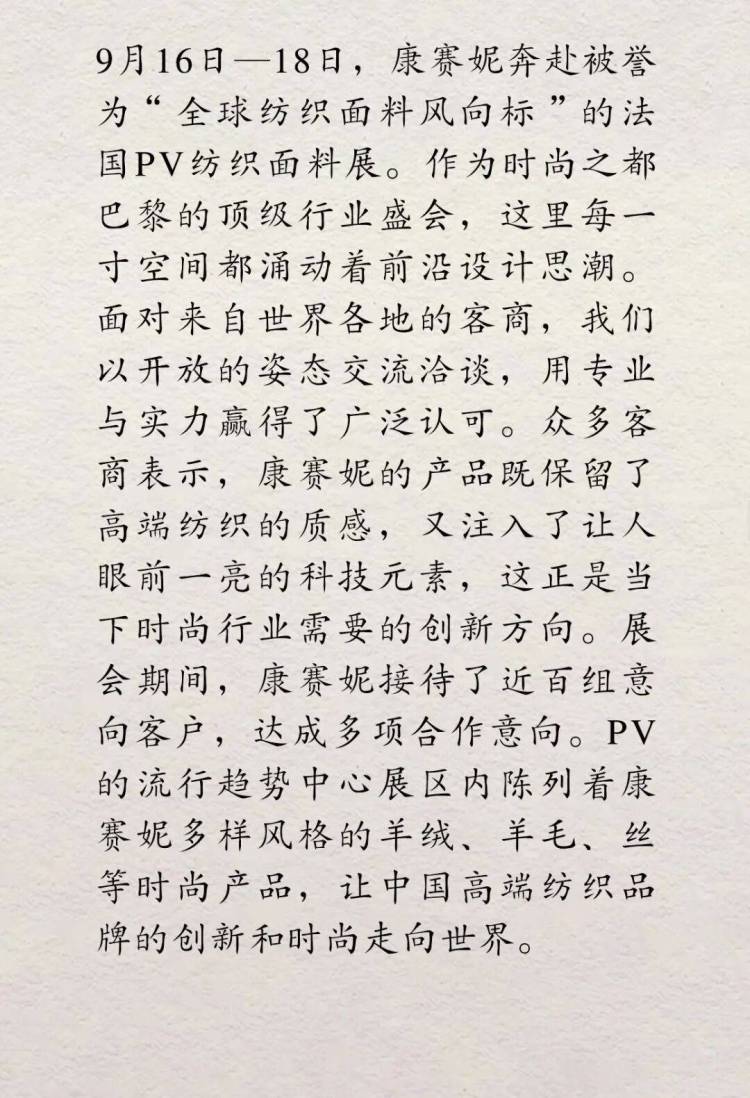 9月16日—18日，康赛妮奔赴被誉
为“全球纺织面料风向标”的法
国PV纺织面料展。作为时尚之都
巴黎的顶级行业盛会，这里每一
寸空间都涌动着前沿设计思潮。
面对来自世界各地的客商，我们
以开放的姿态交流洽谈，用专业
与实力赢得了广泛认可。众多客
商表示，康赛妮的产品既保留了
高端纺织的质感，又注入了让人
眼前一亮的科技元素，这正是当
下时尚行业需要的创新方向。展
会期间，康赛妮接待了近百组意
向客户，达成多项合作意向。PV
的流行趋势中心展区内陈列着康
赛妮多样风格的羊绒、羊毛、丝
等时尚产品，让中国高端纺织品
牌的创新和时尚走向世界。